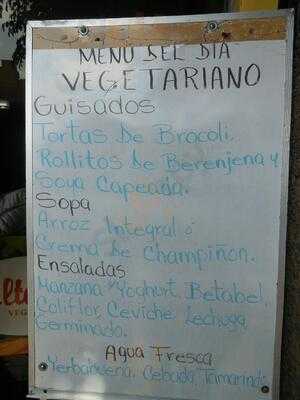 MENU DEL DIA
VEGETARIANO
Guisados
Tortas De Brocoli.
Rollitos De Berenjena y
Soya Capeada.
Sopa
Arroz Integral ó
Crema De Champiñon.
Ensaladas
Manzana y Yoghurt. Betabel,
Coliflor, Ceviche Lechuga
Germinado.
Agua Fresca
Yerbabuena, Cebada Tamarindo
VEG